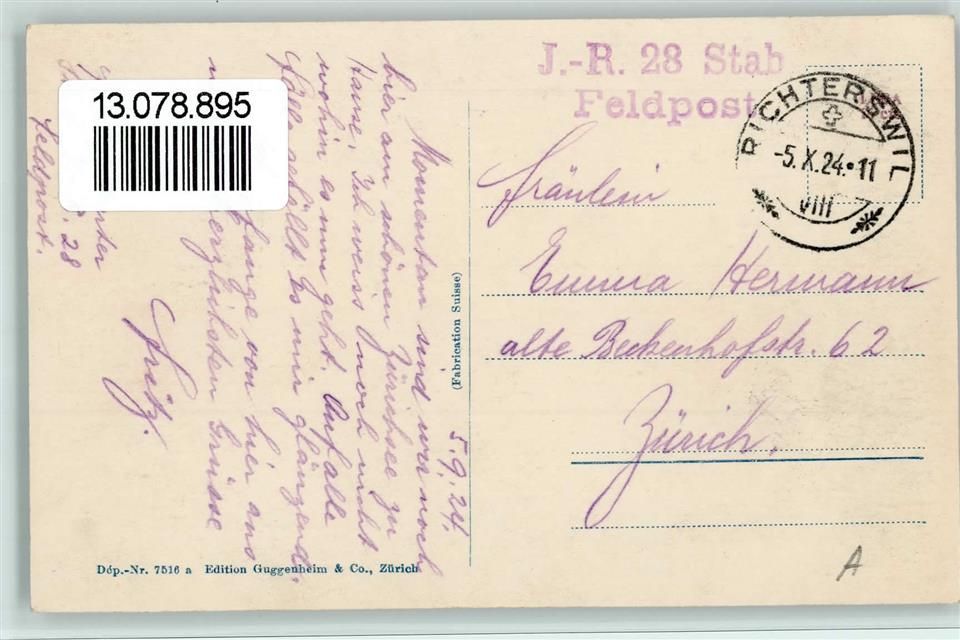 13.078.895
J.-R. 28 Stab
Feldpost
RICHTERSWIL
-5.X.24.-11
VIII
5.9.24.
Momentan sind wir noch
hier am schönen Zürichsee zu
Hause. Ich weiss noch nicht
wohin es nun geht. Auf alle
Fälle gefällt es mir glänzend.
fange von hier aus
herzlichsten Grüsse
Fritz.
28
Feldpost.
Fräulein
Emma Hermann
alte Beckenhofstr. 62
Zürich.
(Fabrication Suisse)
Dép.-Nr. 7516 a Edition Guggenheim & Co., Zürich
A